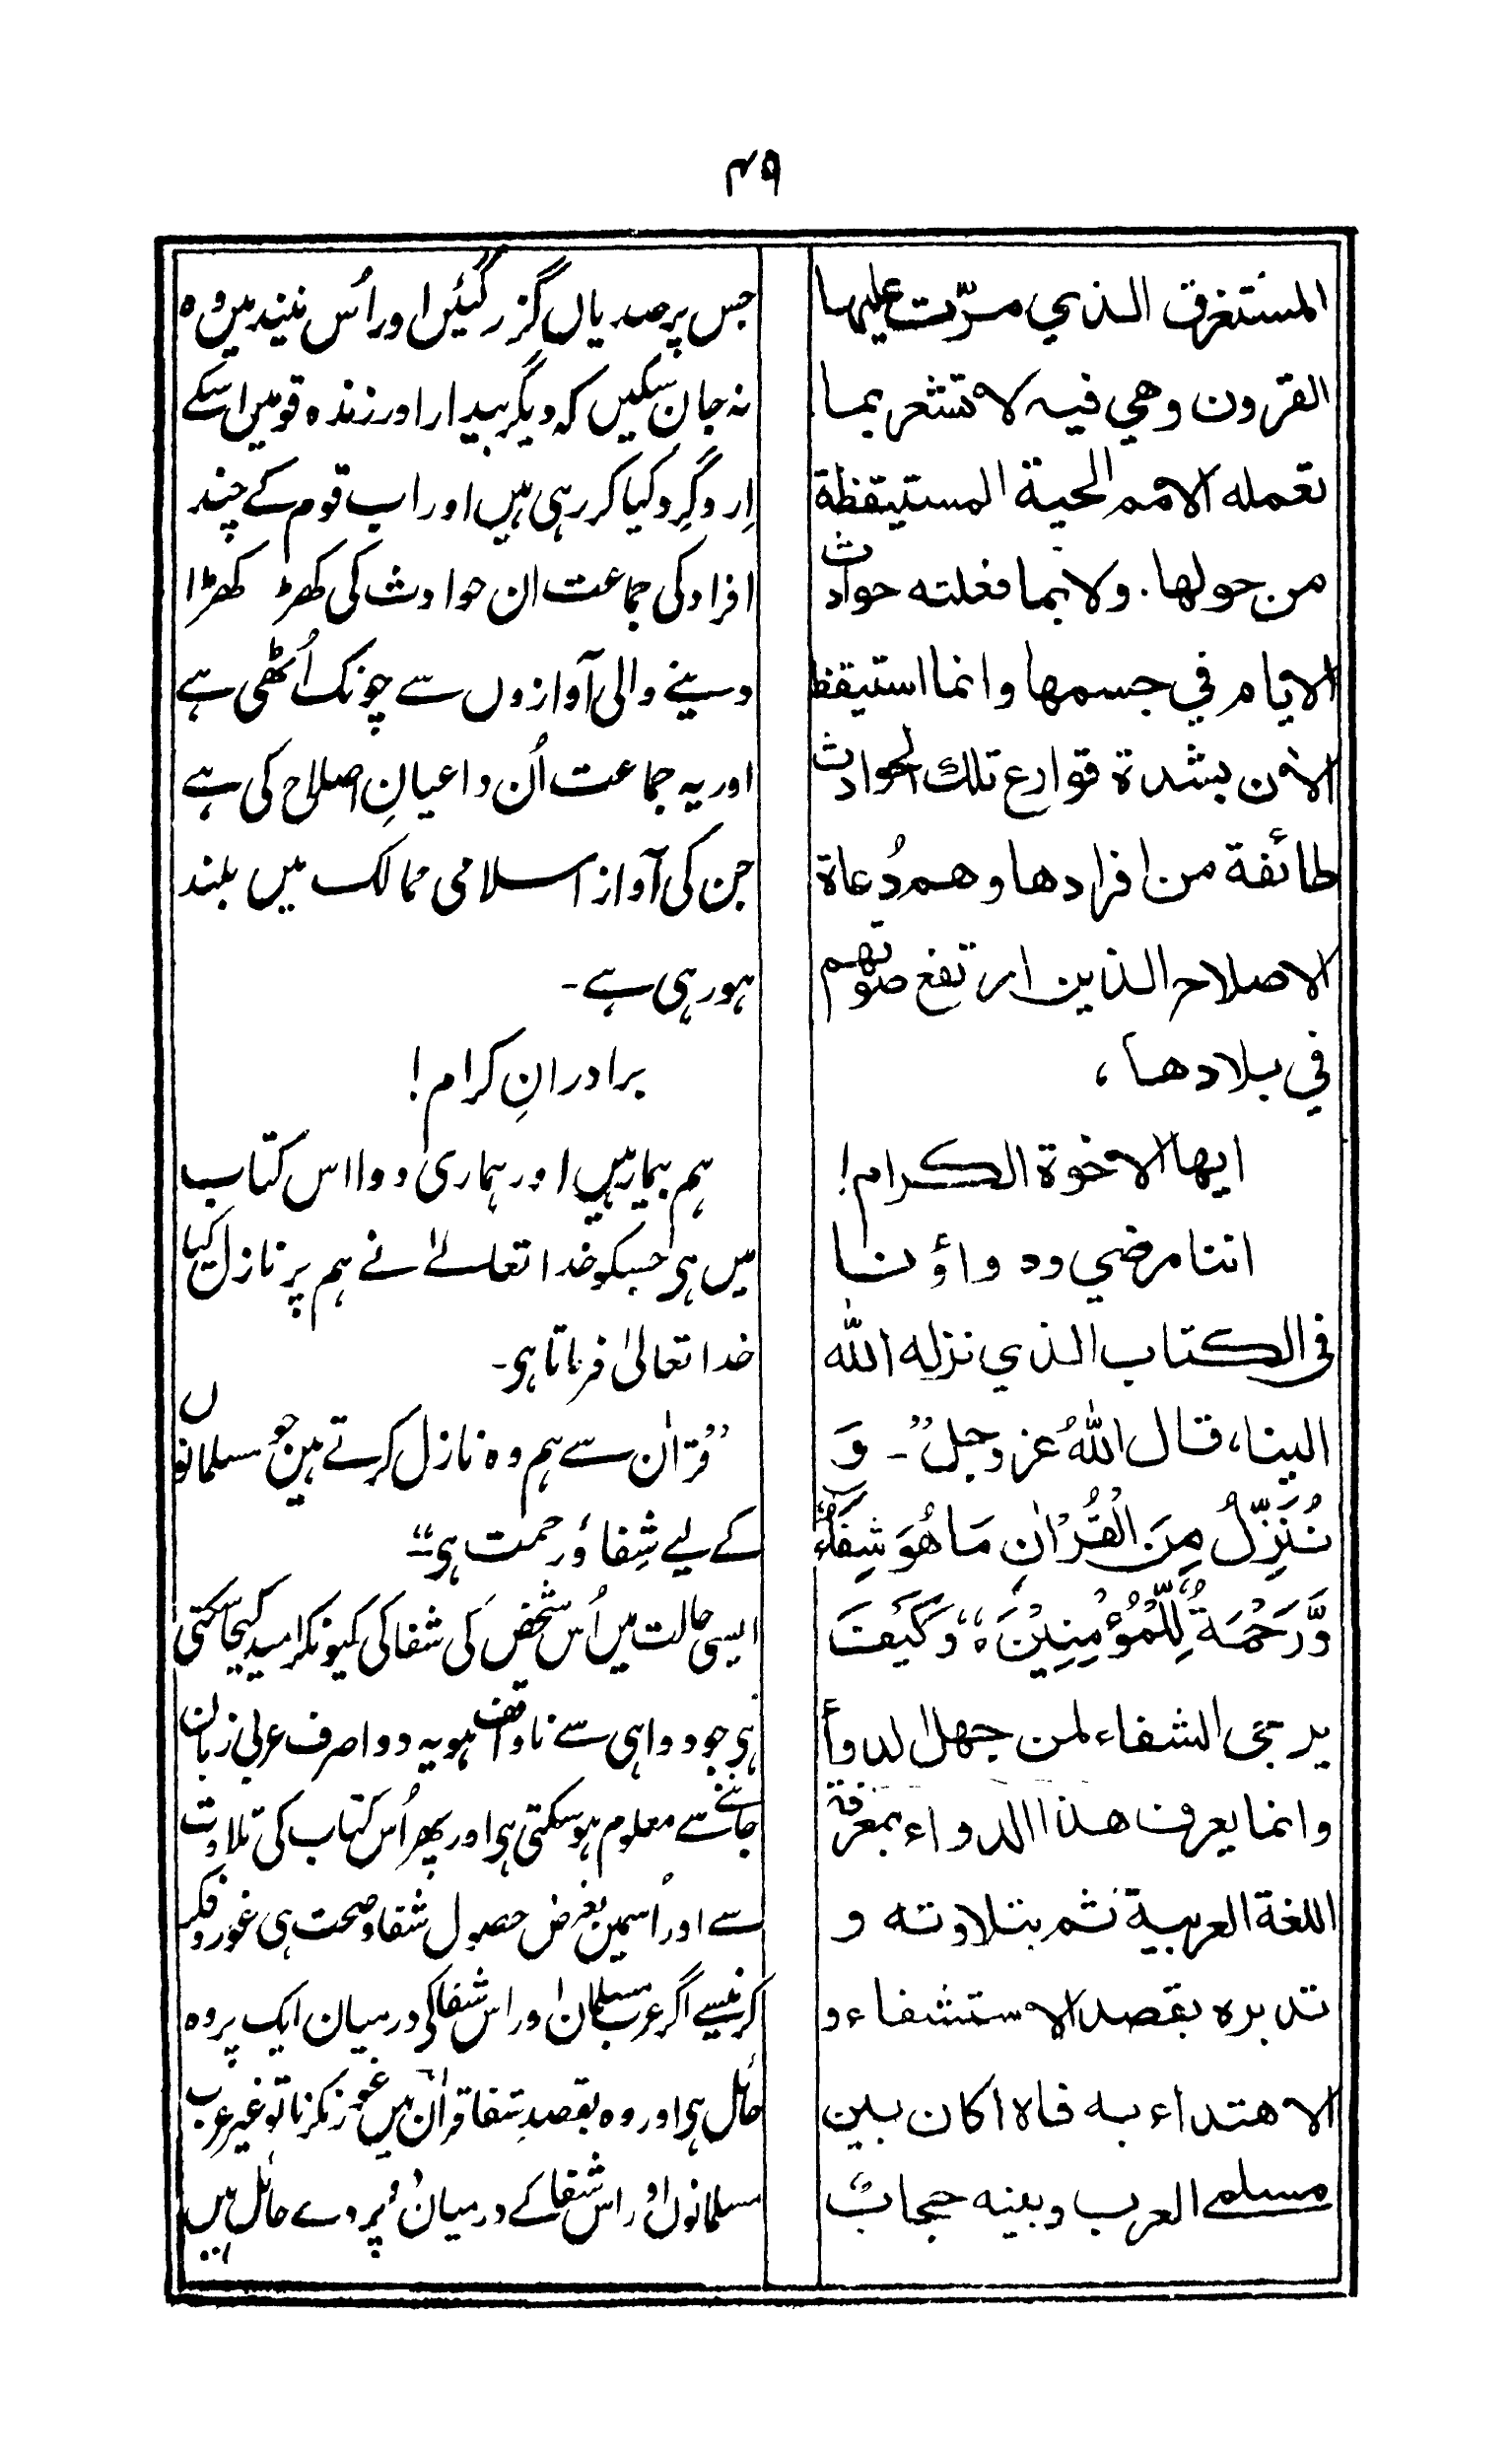 ۴۹
المستغرق الذي مرّت عليها
القرون وهي فيه لا تشعر بما
تعمله الامم الحية المستيقظة
من حولها. ولا بما فعلته حوادث
الايام في جسمها وانما استيقظ
الآن بشدة قوارع تلك الحوادث
طائفة من افرادها وهم دُعاة
الاصلاح الذين ارتفع صوتهم
في بلادها،
ايها الاخوة الكرام!
اننا مرضي ودواؤنا
في الكتاب الذي نزله الله
الينا، قال اللهُ عز وجل "- وَ
نُنَزِّلُ مِنَ الْقُرْاٰنِ مَا هُوَ شِفَآءٌ
وَّرَحْمَةٌ لِّلْمُؤْمِنِيْنَ"، وَكَيْفَ
يرجى الشفاء لمن جهل الدواء
وانما يعرف هذا الدواء بمعرفة
اللغة العربية ثم بتلاوته و
تدبره بقصد الاستشفاء و
الاهتداء به فاذا كان بين
مسلمے العرب وبينه حجابٌ
جس پر صدیاں گزر گئیں اور اُس نیند میں وہ
نہ جان سکیں کہ دیگر بیدار اور زندہ قومیں اسکے
اِردگِرد کیا کر رہی ہیں اور اب قوم کے چند
افراد کی جماعت ان حوادث کی کھڑ کھڑا
دینے والی آوازوں سے چونک اُٹھی ہے
اور یہ جماعت اُن داعیانِ اصلاح کی ہے
جن کی آواز اسلامی ممالک میں بلند
ہو رہی ہے -
برادرانِ کرام!
ہم بیمار ہیں اور ہماری دوا اس کتاب
میں ہی جسکو خدا تعالےٰ نے ہم پر نازل کیا
خدا تعالیٰ فرماتا ہی -
"قرآن سے ہم وہ نازل کرتے ہین جو مسلمانوں
کے لیے شِفا ؤ رحمت ہی"
ایسی حالت میں اُس شخص کی شفا کی کیونکر امید کیجا سکتی
ہی جو دوا ہی سے ناواقف ہو یہ دوا صرف عربی زبان
جاننے سے معلوم ہو سکتی ہی اور پھر اُس کتاب کی تلاوت
سے اور اُسمین بغرض حصول شفا و صحت ہی غور و فکر
کرنیسے اگر عرب مسلمان اور اس شفا کی درمیان ایک پردہ
حائل ہی اور وہ بقصدِ شفا قرآن میں غور نکرنا تو غیر عرب
مسلمانوں اور اس شفا کے درمیان دُو پردے حائل ہیں